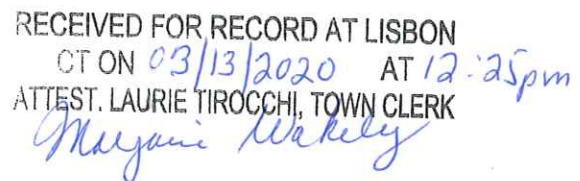 RECEIVED FOR RECORD AT LISBON
CT ON 03/13/2020 AT 12:25pm
ATTEST. LAURIE TIROCCHI, TOWN CLERK
Marjorie Wakely